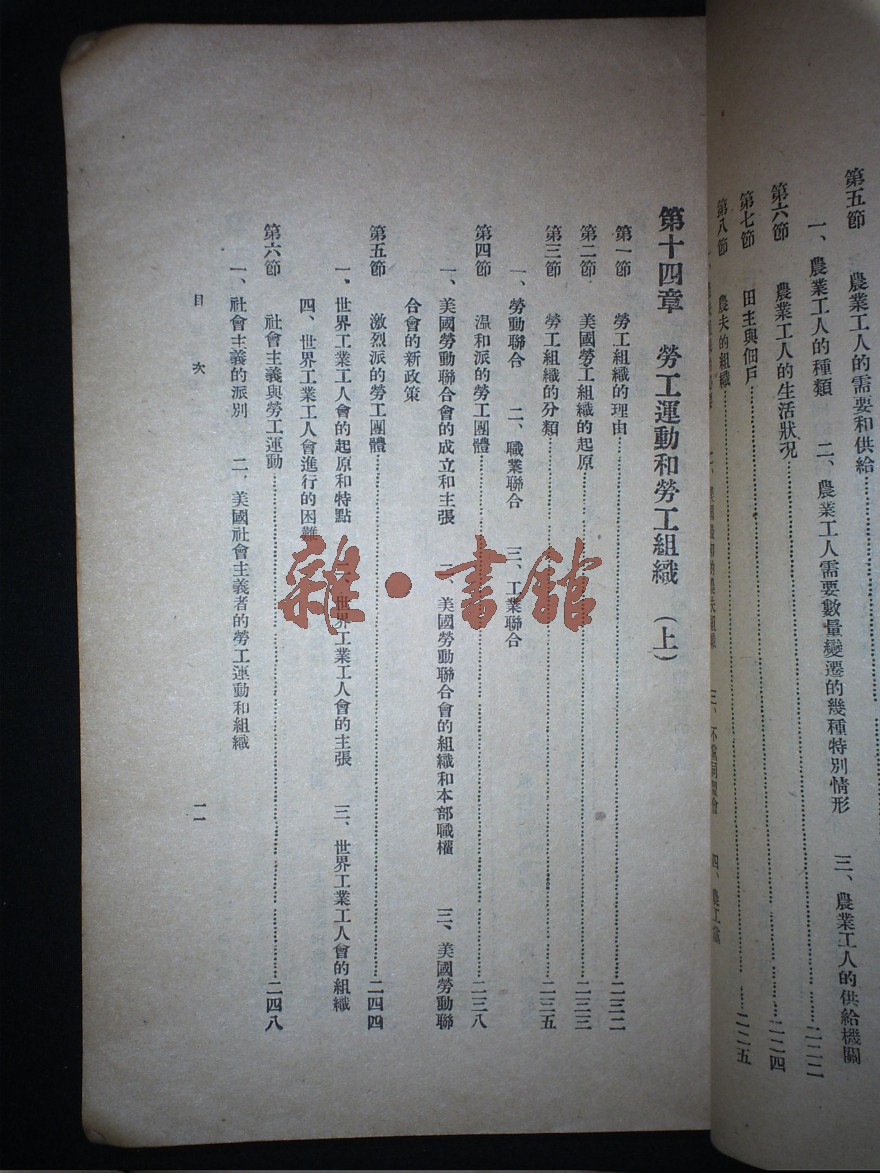 第五節 農業工人的需要和供給
一、農業工人的種類 二、農業工人需要數量變遷的幾種特別情形 三、農業工人的供給機關……二二二
第六節 農業工人的生活狀況……二二四
第七節 田主與佃戶……二二五
第八節 農夫的組織
第十四章 勞工運動和勞工組織(上)
第一節 勞工組織的理由……二三二
第二節 美國勞工組織的起原……二三三
第三節 勞工組織的分類……二三五
一、勞動聯合 二、職業聯合 三、工業聯合
第四節 溫和派的勞工團體……二三八
一、美國勞動聯合會的成立和主張 二、美國勞動聯合會的組織和本部職權 三、美國勞動聯
合會的新政策
第五節 激烈派的勞工團體……二四四
一、世界工業工人會的起原和特點 二、世界工業工人會的主張 三、世界工業工人會的組織
四、世界工業工人會進行的困難
第六節 社會主義與勞工運動……二四八
一、社會主義的派別 二、美國社會主義者的勞工運動和組織
目次
一一
雜·書館